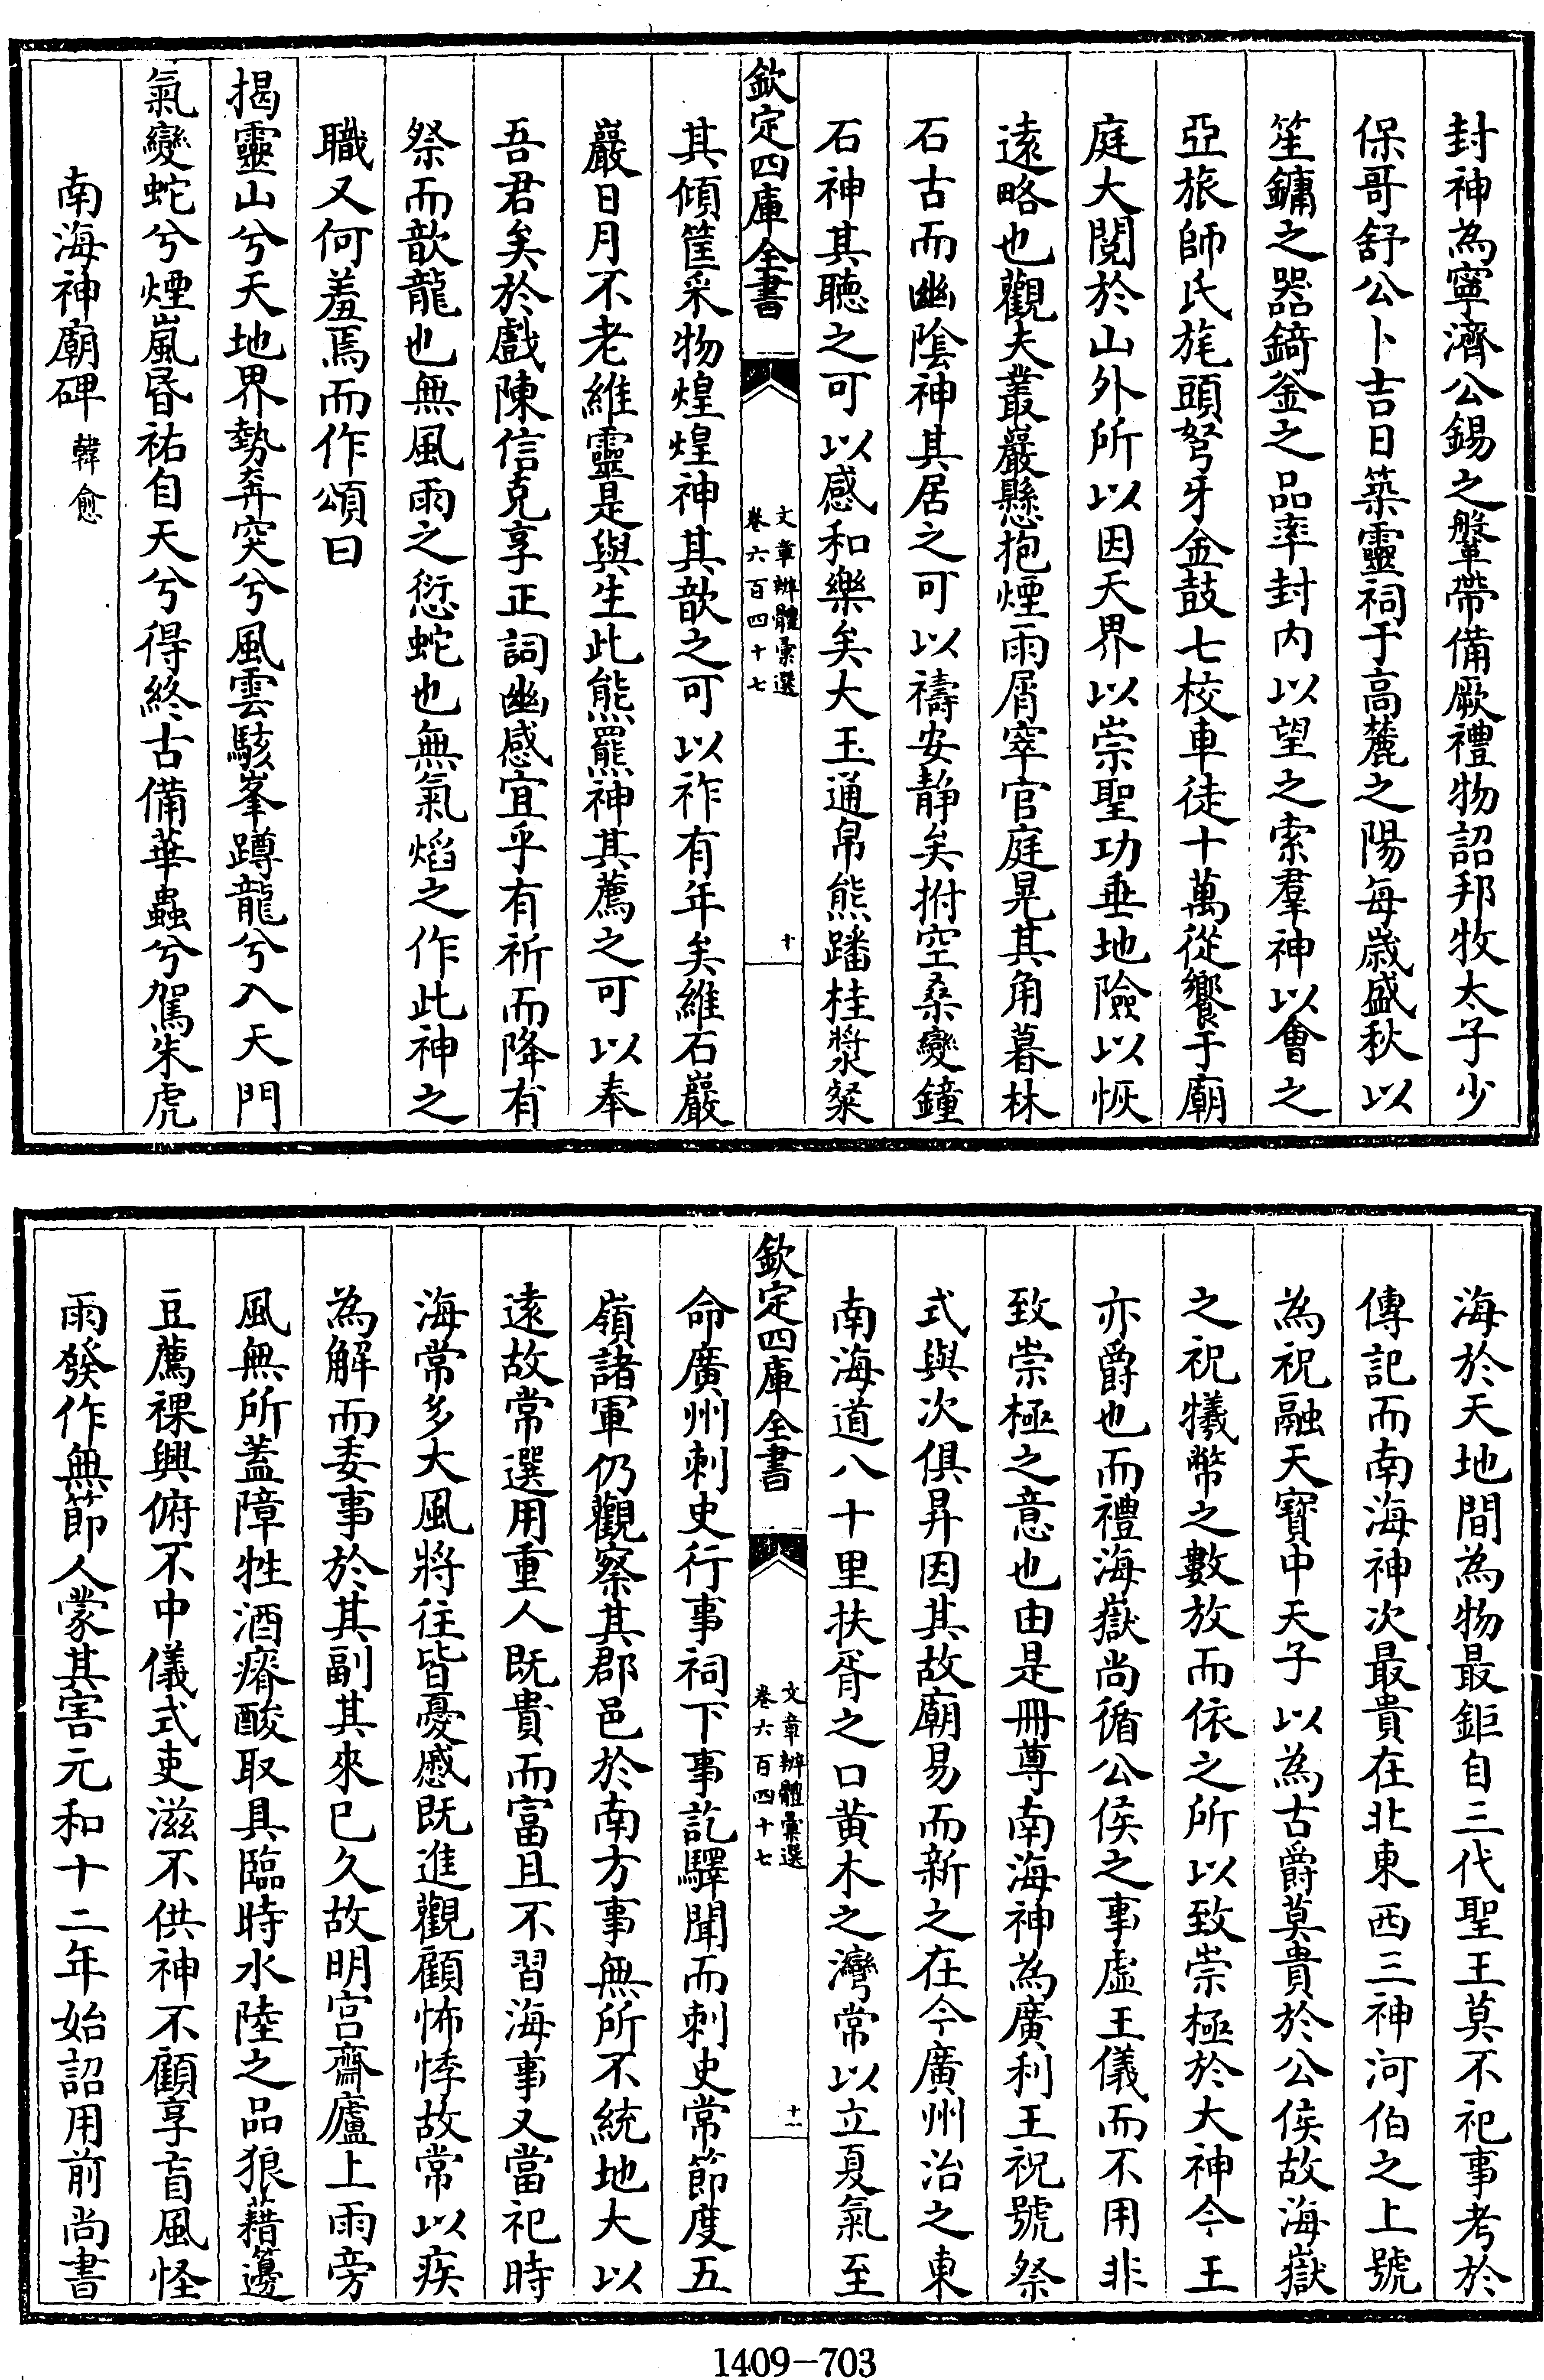 封神為寧濟公錫之鞶帶備厥禮物詔邦牧太子少
保哥舒公卜吉日築靈祠于高麓之陽每嵗盛秋以
笙鏞之器錡釜之品率封内以望之索羣神以會之
亞旅師氏旄頭弩牙金鼓七校車徒十萬從饗于廟
庭大閲於山外所以因天界以崇聖功垂地險以恢
遠略也觀夫叢巖懸抱煙雨屑窣官庭晃其角暮林
石古而幽隂神其居之可以禱安靜矣拊空桑變鐘
石神其聽之可以感和樂矣大玉通帛熊蹯桂漿粲
欽定四庫全書
文章辨體彙選
卷六百四十七
十
其傾筐采物煌煌神其歆之可以祚有年矣維石巖
巖日月不老維靈是與生此熊羆神其薦之可以奉
吾君矣於戲陳信克享正詞幽感宜乎有祈而降有
祭而歆龍也無風雨之愆蛇也無氣焰之作此神之
職又何羞焉而作頌曰
揭靈山兮天地界勢奔突兮風雲駭峯蹲龍兮入天門
氣變蛇兮煙嵐昏祐自天兮得終古備華蟲兮駕朱虎
南海神廟碑 韓愈
海於天地間為物最鉅自三代聖王莫不祀事考於
傳記而南海神次最貴在北東西三神河伯之上號
為祝融天寶中天子以為古爵莫貴於公侯故海嶽
之祝犧幣之數放而依之所以致崇極於大神今王
亦爵也而禮海嶽尚循公侯之事虛王儀而不用非
致崇極之意也由是冊尊南海神為廣利王祝號祭
式與次俱昇因其故廟易而新之在今廣州治之東
南海道八十里扶胥之口黄木之灣常以立夏氣至
欽定四庫全書
文章辨體彙選
卷六百四十七
十一
命廣州刺史行事祠下事訖驛聞而刺史常節度五
嶺諸軍仍觀察其郡邑於南方事無所不統地大以
遠故常選用重人既貴而富且不習海事又當祀時
海常多大風將往皆憂慼既進觀顧怖悸故常以疾
為解而委事於其副其來已久故明宫齋廬上雨旁
風無所蓋障牲酒瘠酸取具臨時水陸之品狼藉籩
豆薦祼興俯不中儀式吏滋不供神不顧享盲風怪
雨發作無節人蒙其害元和十二年始詔用前尚書
1409-703